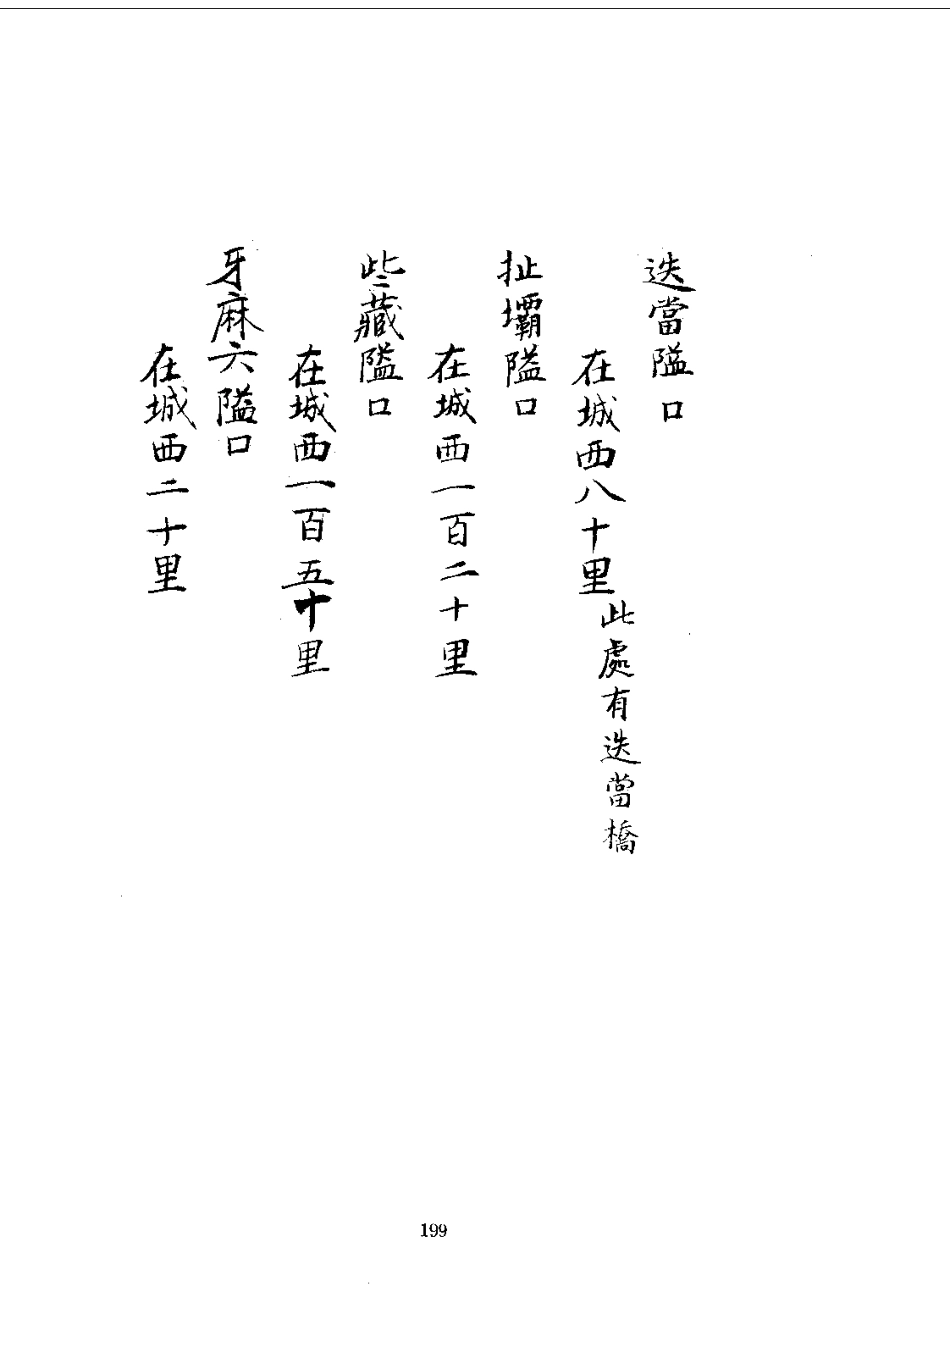 迭當隘口
在城西八十里此處有迭當橋
扯壩隘口
在城西一百二十里
些藏隘口
在城西一百五十里
牙麻六隘口
在城西二十里
199